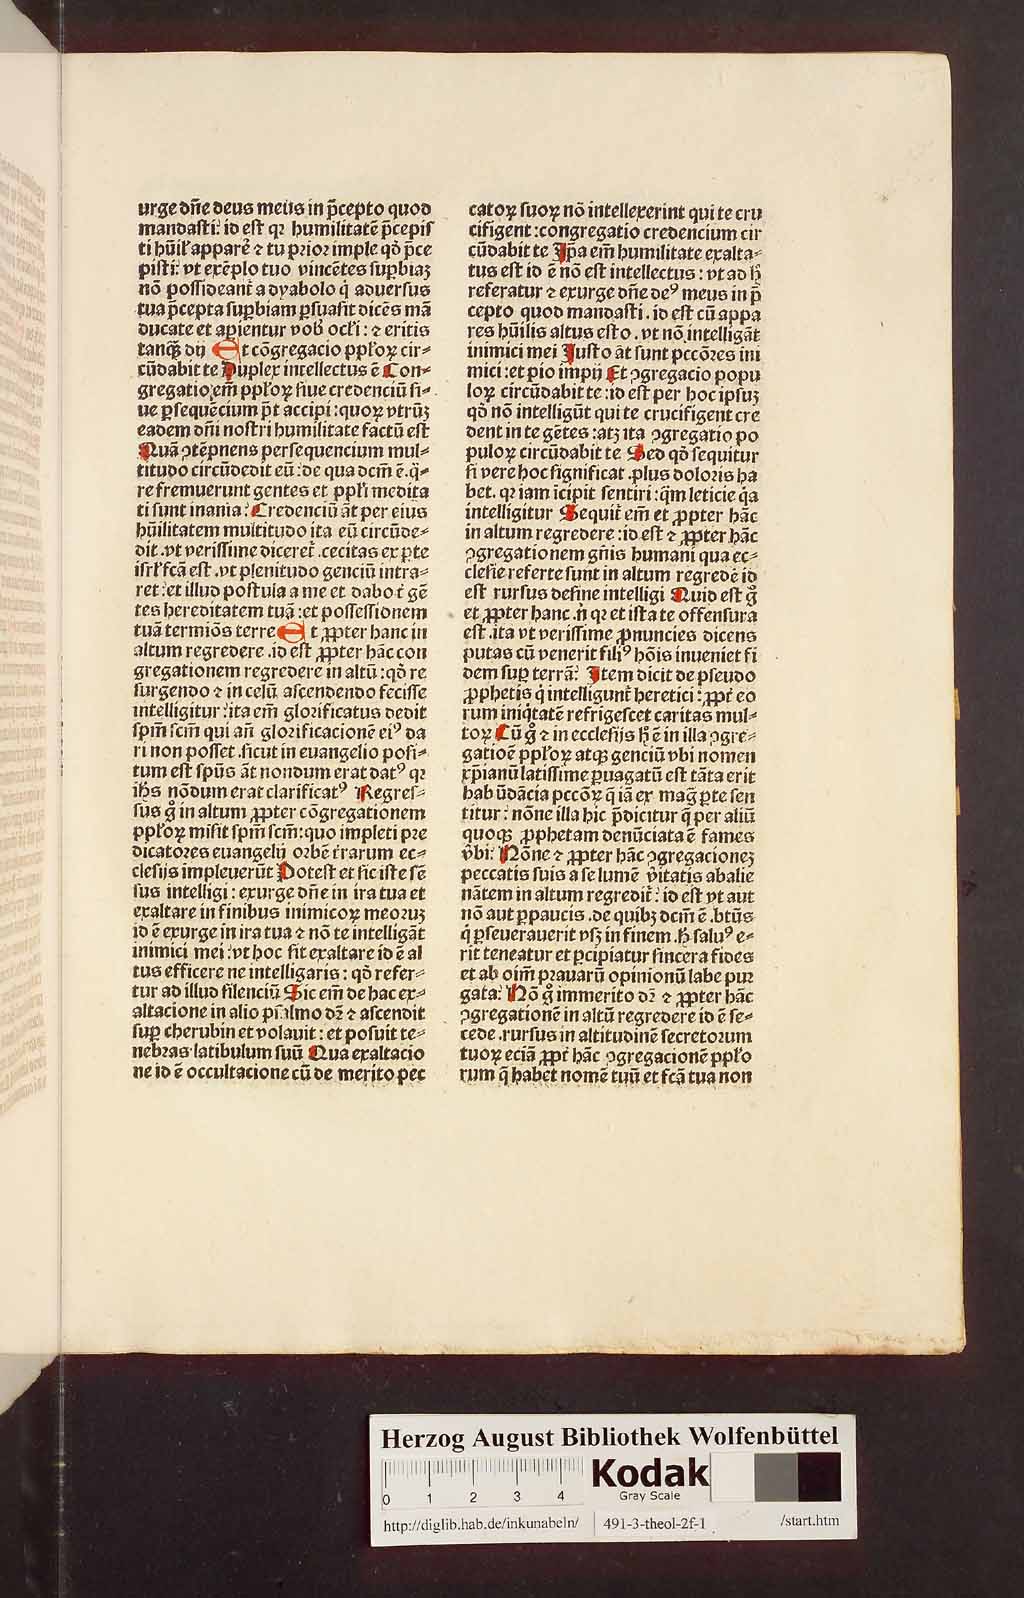 urge dn̄e deus meus in p̄cepto quod
mandasti: id est qꝛ humilitatē p̄cepis
ti hūił apparẽ ⁊ tu prior imple qď p̄ce
pisti: vt exēplo tuo vincētes suꝑbiaꝫ
nō possideant̄ a dyabolo q̇ aduersus
tua p̄cepta suꝑbiam ꝑsuasit dicēs mā
ducate et apientur vob̄ ocłi: ⁊ eritis
tanqꝫ dij Et cōgregacio ppłoꝝ cir⸗
cūdabit te Duplex intellectus ē Con⸗
gregatio em̄ ppłoꝝ siue credenciū si⸗
ue ꝑsequēcium p̄t accipi: quoꝝ vtrūꝫ
eadem dn̄i nostri humilitate factū est
Quā ꝯtēpnens persequencium mul⸗
titudo circūdedit eū: de qua dcm̄ ē. q̇⸗
re fremuerunt gentes et ppłi medita
ti sunt inania: Credenciū āt per eius
hūilitatem multitudo ita eū circūde⸗
dit .vt verissime diceret̄ .cecitas ex ꝑte
isrł fcā est .vt plenitudo genciū intra⸗
ret: et illud postula a me et dabo t̄ gē
tes hereditatem tuā: et possessionem
tuā termiōs terre Et ꝓpter hanc in
altum regredere .id est ꝓpter hāc con
gregationem regredere in altū: qď re
surgendo ⁊ in celū ascendendo fecisse
intelligitur: ita em̄ glorificatus dedit
spm̄ scm̄ qui an̄ glorificacionē eiꝰ da
ri non posset .sicut in euangelio posi⸗
tum est spūs āt nondum erat datꝰ qꝛ
ihs̄ nōdum erat clarificatꝰ Regres⸗
sus g̊ in altum ꝓpter cōgregationem
ppłoꝝ misit spm̄ scm̄: quo impleti pre
dicatores euangelij orbē t̄rarum ec⸗
clesijs impleuerūt Potest et sic iste sē
sus intelligi: exurge dn̄e in ira tua et
exaltare in finibus inimicoꝝ meoruꝫ
id ē exurge in ira tua ⁊ nō te intelligāt
inimici mei: vt hoc sit exaltare id ē al
tus efficere ne intelligaris: qď refer⸗
tur ad illud silenciū Sic em̄ de hac ex⸗
altacione in alio psalmo dꝫ ⁊ ascendit
suꝑ cherubin et volauit: et posuit te⸗
nebras latibulum suū Qua exaltacio
ne id ē occultacione cū de merito pec
catoꝝ suoꝝ nō intellexerint qui te cru
cifigent: congregatio credencium cir
cūdabit te Ip̄a em̄ humilitate exalta⸗
tus est id ē nō est intellectus: vt ad h̄
referatur ⁊ exurge dn̄e deꝰ meus in p̄
cepto quod mandasti .id est cū appa
res hūilis altus esto .vt nō intelligāt
inimici mei Justo āt sunt pccōres ini
mici: et pio impij Et ꝯgregacio popu
loꝝ circūdabit te: id est per hoc ipsuꝫ
qď nō intelligūt qui te crucifigent cre
dent in te gētes: atqꝫ ita ꝯgregatio po
puloꝝ circūdabit te Sed qď sequitur
si vere hoc significat .plus doloris ha
bet. qꝛ iam īcipit sentiri: q̄m leticie q̄a
intelligitur Sequit̄ em̄ et ꝓpter hāc
in altum regredere: id est ⁊ ꝓpter hāc
ꝯgregationem gn̄is humani qua ec⸗
clesie referte sunt in altum regredē id
est rursus desine intelligi Quid est g̊
et ꝓpter hanc .n̄ qꝛ et ista te offensura
est .ita vt verissime ꝓnuncies dicens
putas cū venerit filiꝰ hōis inueniet fi
dem suꝑ terrā: Item dicit de pseudo
ꝓphetis q̇ intelligunt̄ heretici: ꝓpt̄ eo
rum iniq̇tatē refrigescet caritas mul⸗
toꝝ Cū g̊ ⁊ in ecclesijs h̄ ē in illa ꝯgre⸗
gatiōe ppłoꝝ atqꝫ genciū vbi nomen
xp̄ianū latissime ꝑuagatū est tāta erit
hab ūdācia pccōꝝ q̄ iā ex mag̊ ꝑte sen
titur: nōne illa hic p̄dicitur q̄ per aliū
quoqꝫ ꝓphetam denūciata ē fames
v̄bi: Nōne ⁊ ꝓpter hāc ꝯgregacioneꝫ
peccatis suis a se lumē v̄itatis abalie
nātem in altum regredit̄: id est vt aut
nō aut ꝑpaucis .de quibꝫ dcm̄ ē .btūs
q̇ ꝑseuerauerit vsqꝫ in finem .h̄ saluꝰ e⸗
rit teneatur et ꝑcipiatur sincera fides
et ab oīm prauarū opinionū labe pur
gata: Nō g̊ immerito dꝫ ⁊ ꝓpter hāc
ꝯgregationē in altū regredere id ē se⸗
cede .rursus in altitudinē secretorum
tuoꝝ eciā ꝓpt̄ hāc ꝯgregacionē ppło
rum q̄ habet nomē tuū et fcā tua non
Herzog August Bibliothek Wolfenbüttel
0 1 2 3 4
Kodak
Gray Scale
http://diglib.hab.de/inkunabeln/ 491-3-theol-2f-1 /start.htm